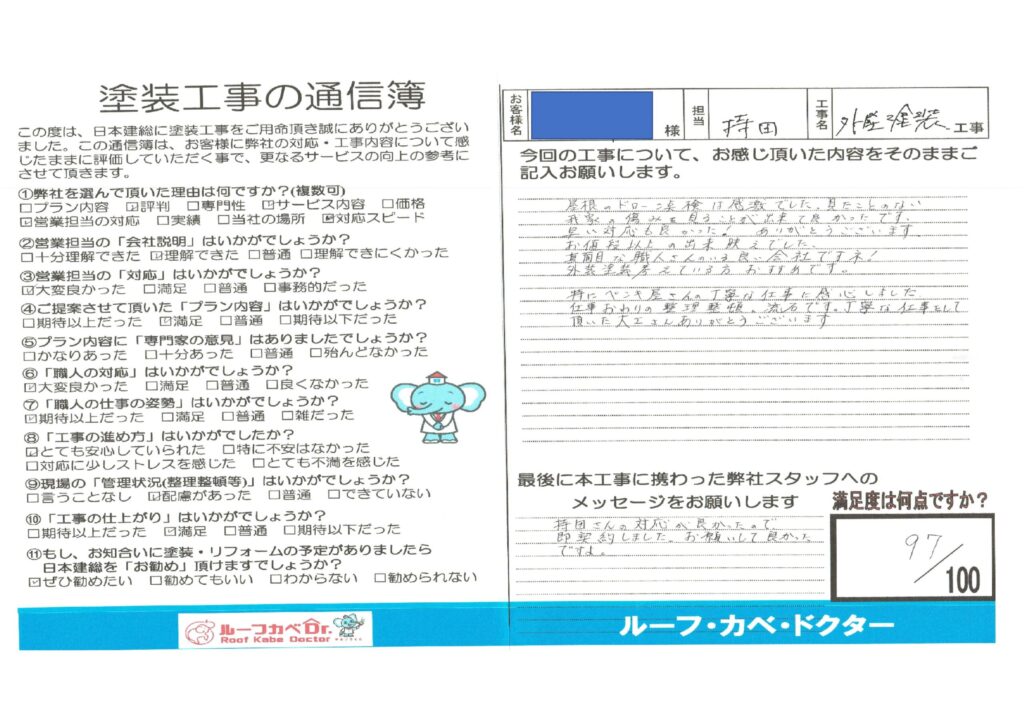 塗装工事の通信簿
この度は、日本建総に塗装工事をご用命頂き誠にありがとうござい
ました。この通信簿は、お客様に弊社の対応・工事内容について感
じたままに評価していただく事で、更なるサービスの向上の参考に
させて頂きます。
①弊社を選んで頂いた理由は何ですか?(複数可)
□プラン内容 ☑評判 □専門性 ☑サービス内容 □価格
☑営業担当の対応 □実績 □当社の場所 ☑対応スピード
②営業担当の「会社説明」はいかがでしょうか?
□十分理解できた ☑理解できた □普通 □理解できにくかった
③営業担当の「対応」はいかがでしょうか?
☑大変良かった □満足 □普通 □事務的だった
④ご提案させて頂いた「プラン内容」はいかがでしょうか?
□期待以上だった ☑満足 □普通 □期待以下だった
⑤プラン内容に「専門家の意見」はありましたでしょうか?
□かなりあった □十分あった □普通 □殆んどなかった
⑥「職人の対応」はいかがでしょうか?
☑大変良かった □満足 □普通 □良くなかった
⑦「職人の仕事の姿勢」はいかがでしょうか?
☑期待以上だった □満足 □普通 □雑だった
⑧「工事の進め方」はいかがでしたか?
☑とても安心していられた □特に不安はなかった
□対応に少しストレスを感じた □とても不満を感じた
⑨現場の「管理状況(整理整頓等)」はいかがでしょうか?
□言うことなし ☑配慮があった □普通 □できていない
⑩「工事の仕上がり」はいかがでしょうか?
□期待以上だった ☑満足 □普通 □期待以下だった
⑪もし、お知合いに塗装・リフォームの予定がありましたら
日本建総を「お勧め」頂けますでしょうか?
☑ぜひ勧めたい □勧めてもいい □わからない □勧められない
ルーフカベDr.
Roof Kabe Doctor
お客様名 様 担当 持田 工事名 外壁塗装 工事
今回の工事について、お感じ頂いた内容をそのままご
記入お願いします。
屋根のドローン点検は感激でした。見たことのない
我家の傷みを見ることが出来て良かったです。
早い対応も良かった! ありがとうございます
お値段以上の出来映えでした。
真面目な職人さんのいる良い会社ですネ!
外装塗装考えている方おすすめです。
特にペンキ屋さんの丁寧な仕事に感心しました
仕事おわりの整理整頓、流石です。丁寧な仕事をして
頂いた大工さんありがとうございます
最後に本工事に携わった弊社スタッフへの
メッセージをお願いします
満足度は何点ですか?
持田さんの対応が良かったので
即契約しました。お願いして良かった
ですよ。
97/100
ルーフ・カベ・ドクター